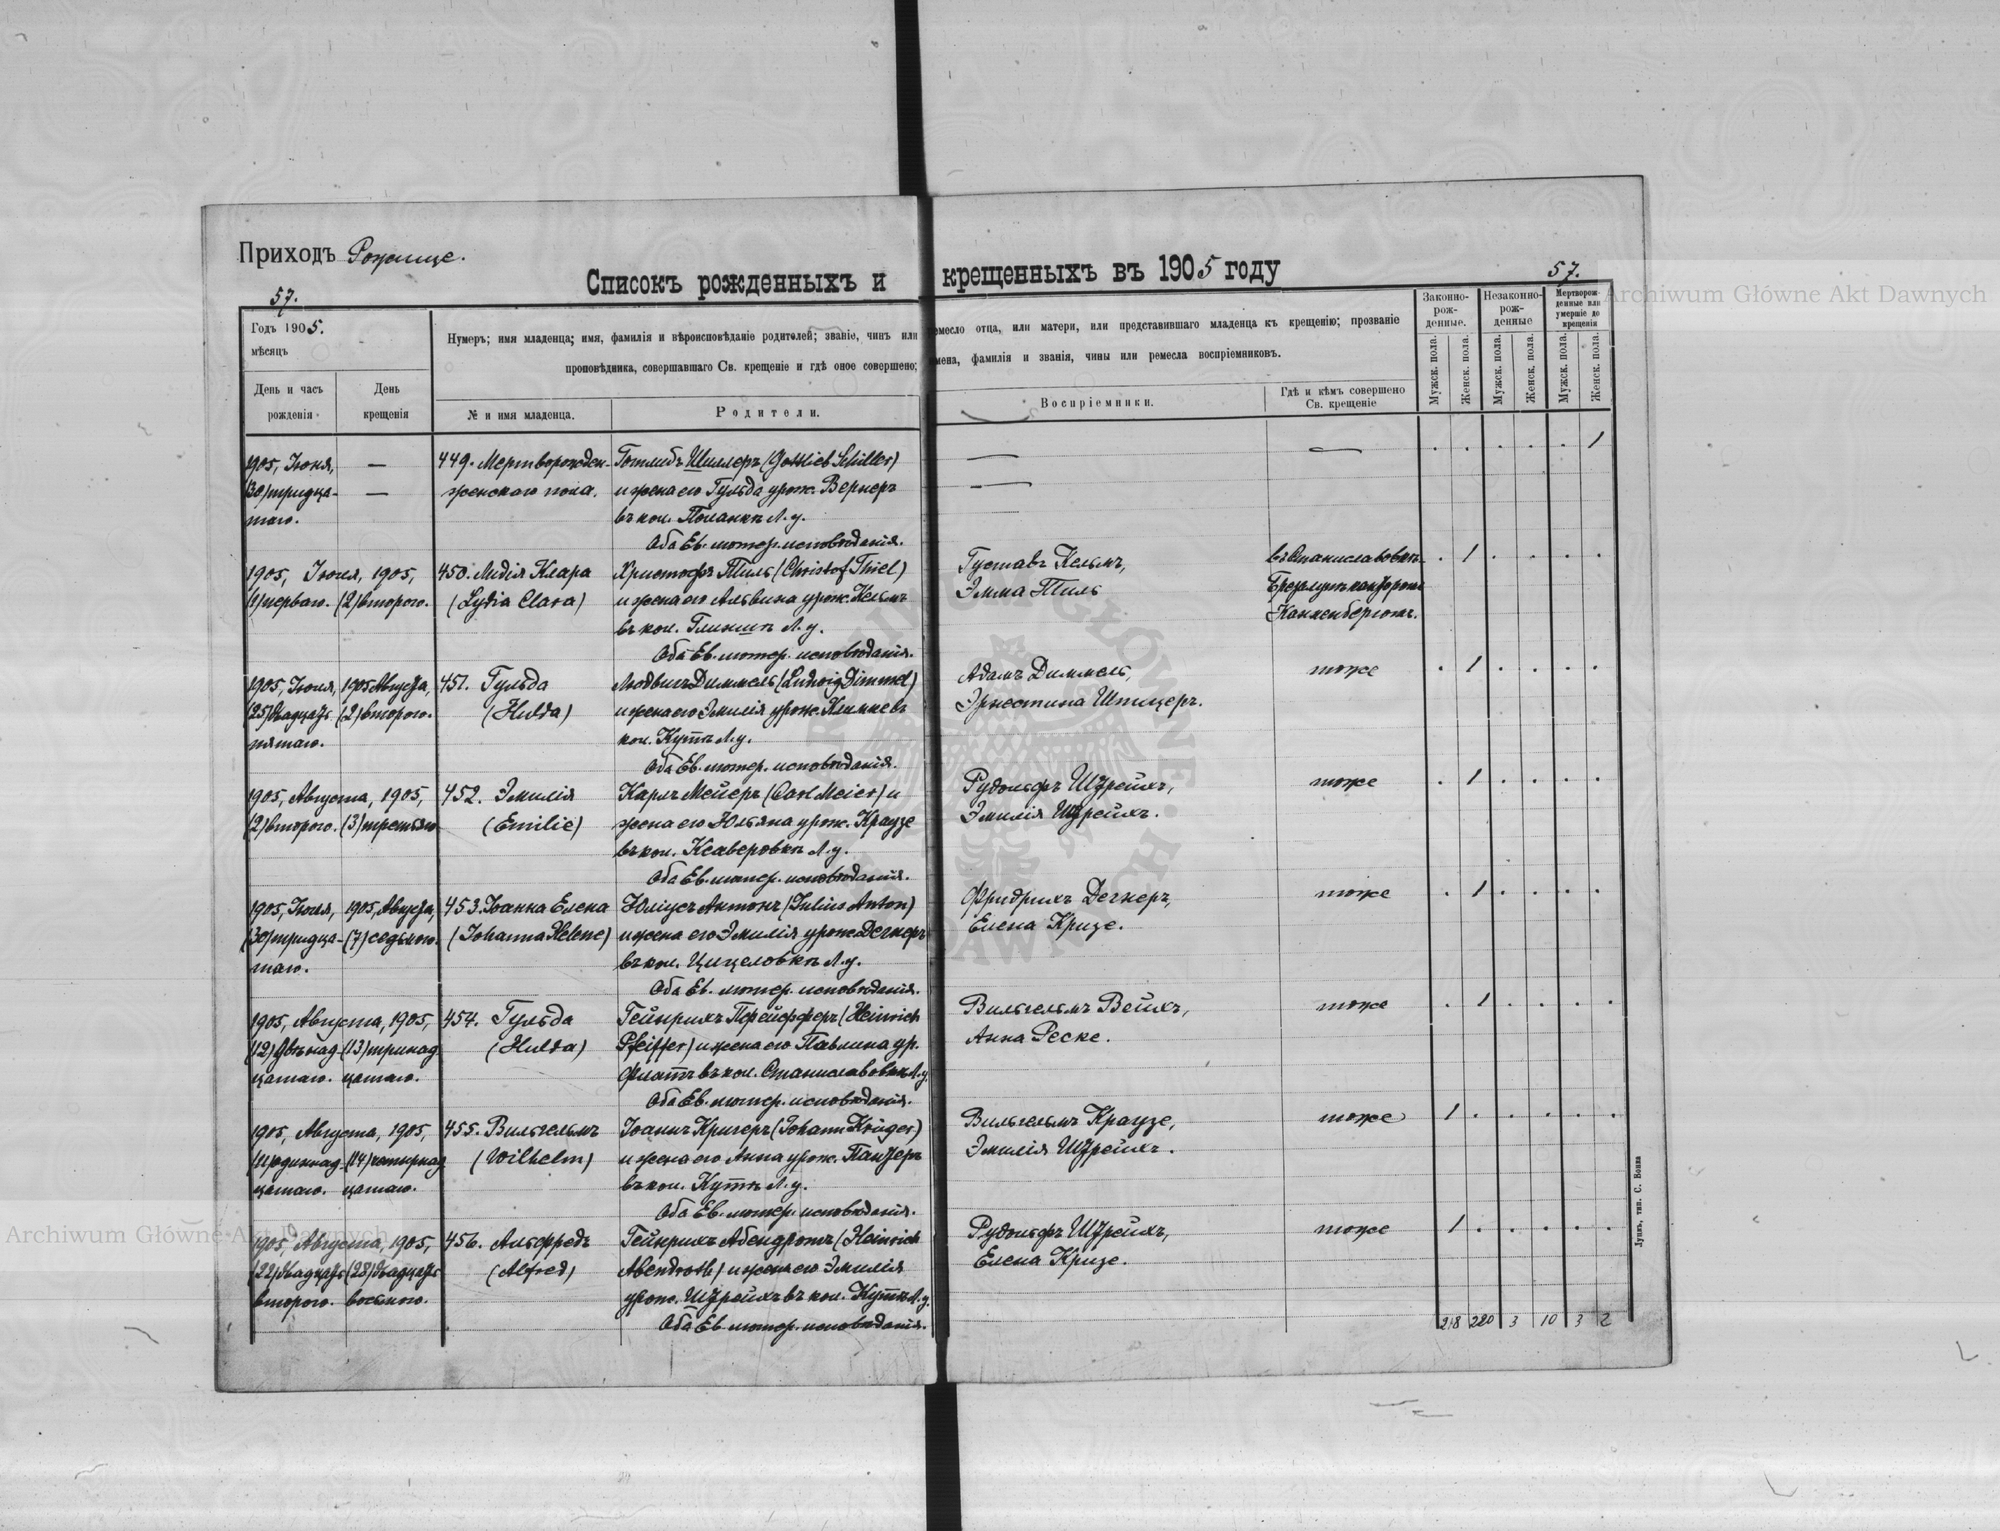 Приходъ Рожище.
Списокъ рожденныхъ и крещенныхъ въ 1905 году
57.
57.
Годъ 1905.
мѣсяцъ
День и часъ
рожденія
День
крещенія
Нумеръ; имя младенца; имя, фамилія и вѣроисповѣданіе родителей; званіе, чинъ или ремесло отца, или матери, или представившаго младенца къ крещенію; прозваніе
проповѣдника, совершавшаго Св. крещеніе и гдѣ оное совершено; имена, фамилія и званія, чины или ремесла воспріемниковъ.
№ и имя младенца.
Родители.
Воспріемники.
Гдѣ и кѣмъ совершено
Св. крещеніе
Законно-
рож-
денные.
Незаконно-
рож-
денные
Мертворож-
денные или
умершіе до
крещенія
Мужск. пола.
Женск. пола.
Мужск. пола.
Женск. пола.
Мужск. пола.
Женск. пола.
1905, Іюня, — 449. Мертворожден. Готлибъ Шиллеръ (Gottlieb Schiller) — — . . . . . 1
(30) тридца- — женскаго пола. и жена его Гульда урож. Вернеръ —
таго. въ кол. Поланкѣ Л. у.
Оба Ев. лютер. исповѣданія.
1905, Іюля, 1905, 450. Лидія Клара Христофъ Тиль (Christof Thiel) Густавъ Кельмъ, въ Станиславовкѣ . 1 . . . .
(1) перваго. (2) второго. (Lydia Clara) и жена его Альвина урож. Кельмъ Эмма Тиль
въ кол. Глинищѣ Л. у. Канненбергомъ.
Оба Ев. лютер. исповѣданія.
1905, Іюля, 1905 Августа, 451. Гульда Людвигъ Диммель (Ludwig Dimmel) Адамъ Диммель, тоже . 1 . . . .
(25) двадцать (2) второго. (Hulda) и жена его Эмилія урож. Климке въ Эрнестина Штицеръ.
пятаго. кол. Кутъ Л. у.
Оба Ев. лютер. исповѣданія.
1905, Августа, 1905, 452. Эмилія Карлъ Мейеръ (Carl Meier) и Рудольфъ Штрейхъ, тоже . 1 . . . .
(2) второго. (3) третьяго (Emilie) жена его Юльяна урож. Краузе Эмилія Штрейхъ.
въ кол. Ксаверовкѣ Л. у.
Оба Ев. лютер. исповѣданія.
1905, Іюля, 1905, Августа, 453. Іоанна Елена Юліусъ Антонъ (Julius Anton) Фридрихъ Дегнеръ, тоже . 1 . . . .
(30) тридца- (7) седьмого. (Johanna Helene) и жена его Эмилія урож. Дегнеръ Елена Кризе.
таго. въ кол. Цицеловкѣ Л. у.
Оба Ев. лютер. исповѣданія.
1905, Августа, 1905, 454. Гульда Гейнрихъ Пфейфферъ (Heinrich Вильгельмъ Вейхъ, тоже . 1 . . . .
(12) двѣнад- (13) тринад- (Hulda) Pfeiffer) и жена его Павлина ур. Анна Реске.
цатаго. цатаго. Флатъ въ кол. Станиславовкѣ Л. у.
Оба Ев. лютер. исповѣданія.
1905, Августа, 1905, 455. Вильгельмъ Іоаннъ Кригеръ (Johann Krüger) Вильгельмъ Краузе, тоже 1 . . . . .
(11) одиннад- (14) четырнад- (Wilhelm) и жена его Анна урож. Панцеръ Эмилія Штрейхъ.
цатаго. цатаго. въ кол. Кутъ Л. у.
Оба Ев. лютер. исповѣданія.
1905, Августа, 1905, 456. Альфредъ Гейнрихъ Абендротъ (Heinrich Рудольфъ Штрейхъ, тоже 1 . . . . .
(22) двадцать (28) двадцать (Alfred) Abendroth) и жена его Эмилія Елена Кризе.
второго. восьмого. урож. Штрейхъ въ кол. Кутъ Л. у.
Оба Ев. лютер. исповѣданія.
218 220 3 10 3 2
Луцкъ, тип. С. Бонка
Archiwum Główne Akt Dawnych
Archiwum Główne Akt Dawnych